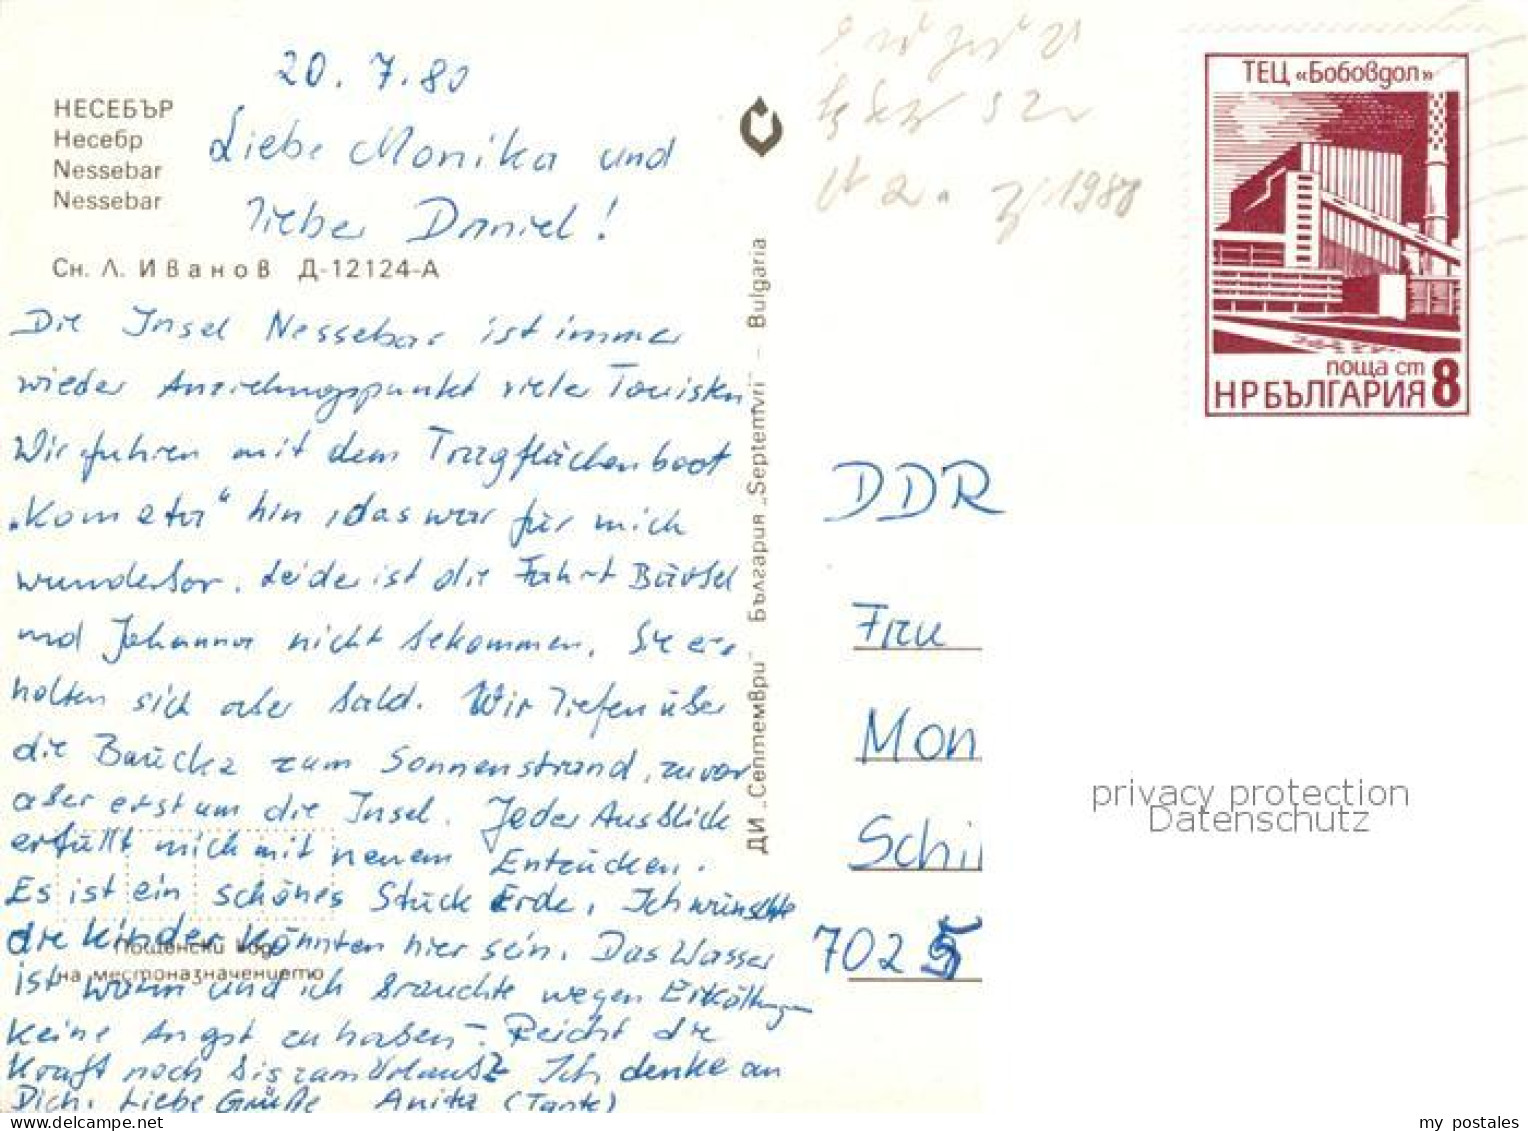 20.7.80
НЕСЕБЪР
Несебр
Nessebar
Nessebar
Liebe Monika und
lieber Daniel!
Сн. Л. Иванов Д-12124-А
Die Insel Nessebar ist immer
wieder Anziehungspunkt vieler Touristen
Wir fuhren mit dem Tragflächenboot
„Kometa“ hin, das war für mich
wunderbar. Leider ist die Fahrt Bärbel
und Johanna nicht bekommen. Sie er-
holten sich aber bald. Wir liefen über
die Brücke zum Sonnenstrand, zuvor
aber erst um die Insel. Jeder Ausblick
erfüllt mich mit neuem Entzücken.
Es ist ein schönes Stück Erde. Ich wünschte
die Kinder könnten hier sein. Das Wasser
ist warm und ich brauchte wegen Erkältungen
keine Angst zu haben. – Reicht die
Kraft noch bis zum Urlaub? Ich denke an
Dich. Liebe Grüße Anita (Tante)
Пощенски код
на местоназначението
ДИ „Септември“ България „Septemvri“ – Bulgaria
1980
ТЕЦ «Бобовдол»
поща ст 8
НРБЪЛГАРИЯ
DDR
Frau
Mon
Schil
7025
privacy protection
Datenschutz
my postales